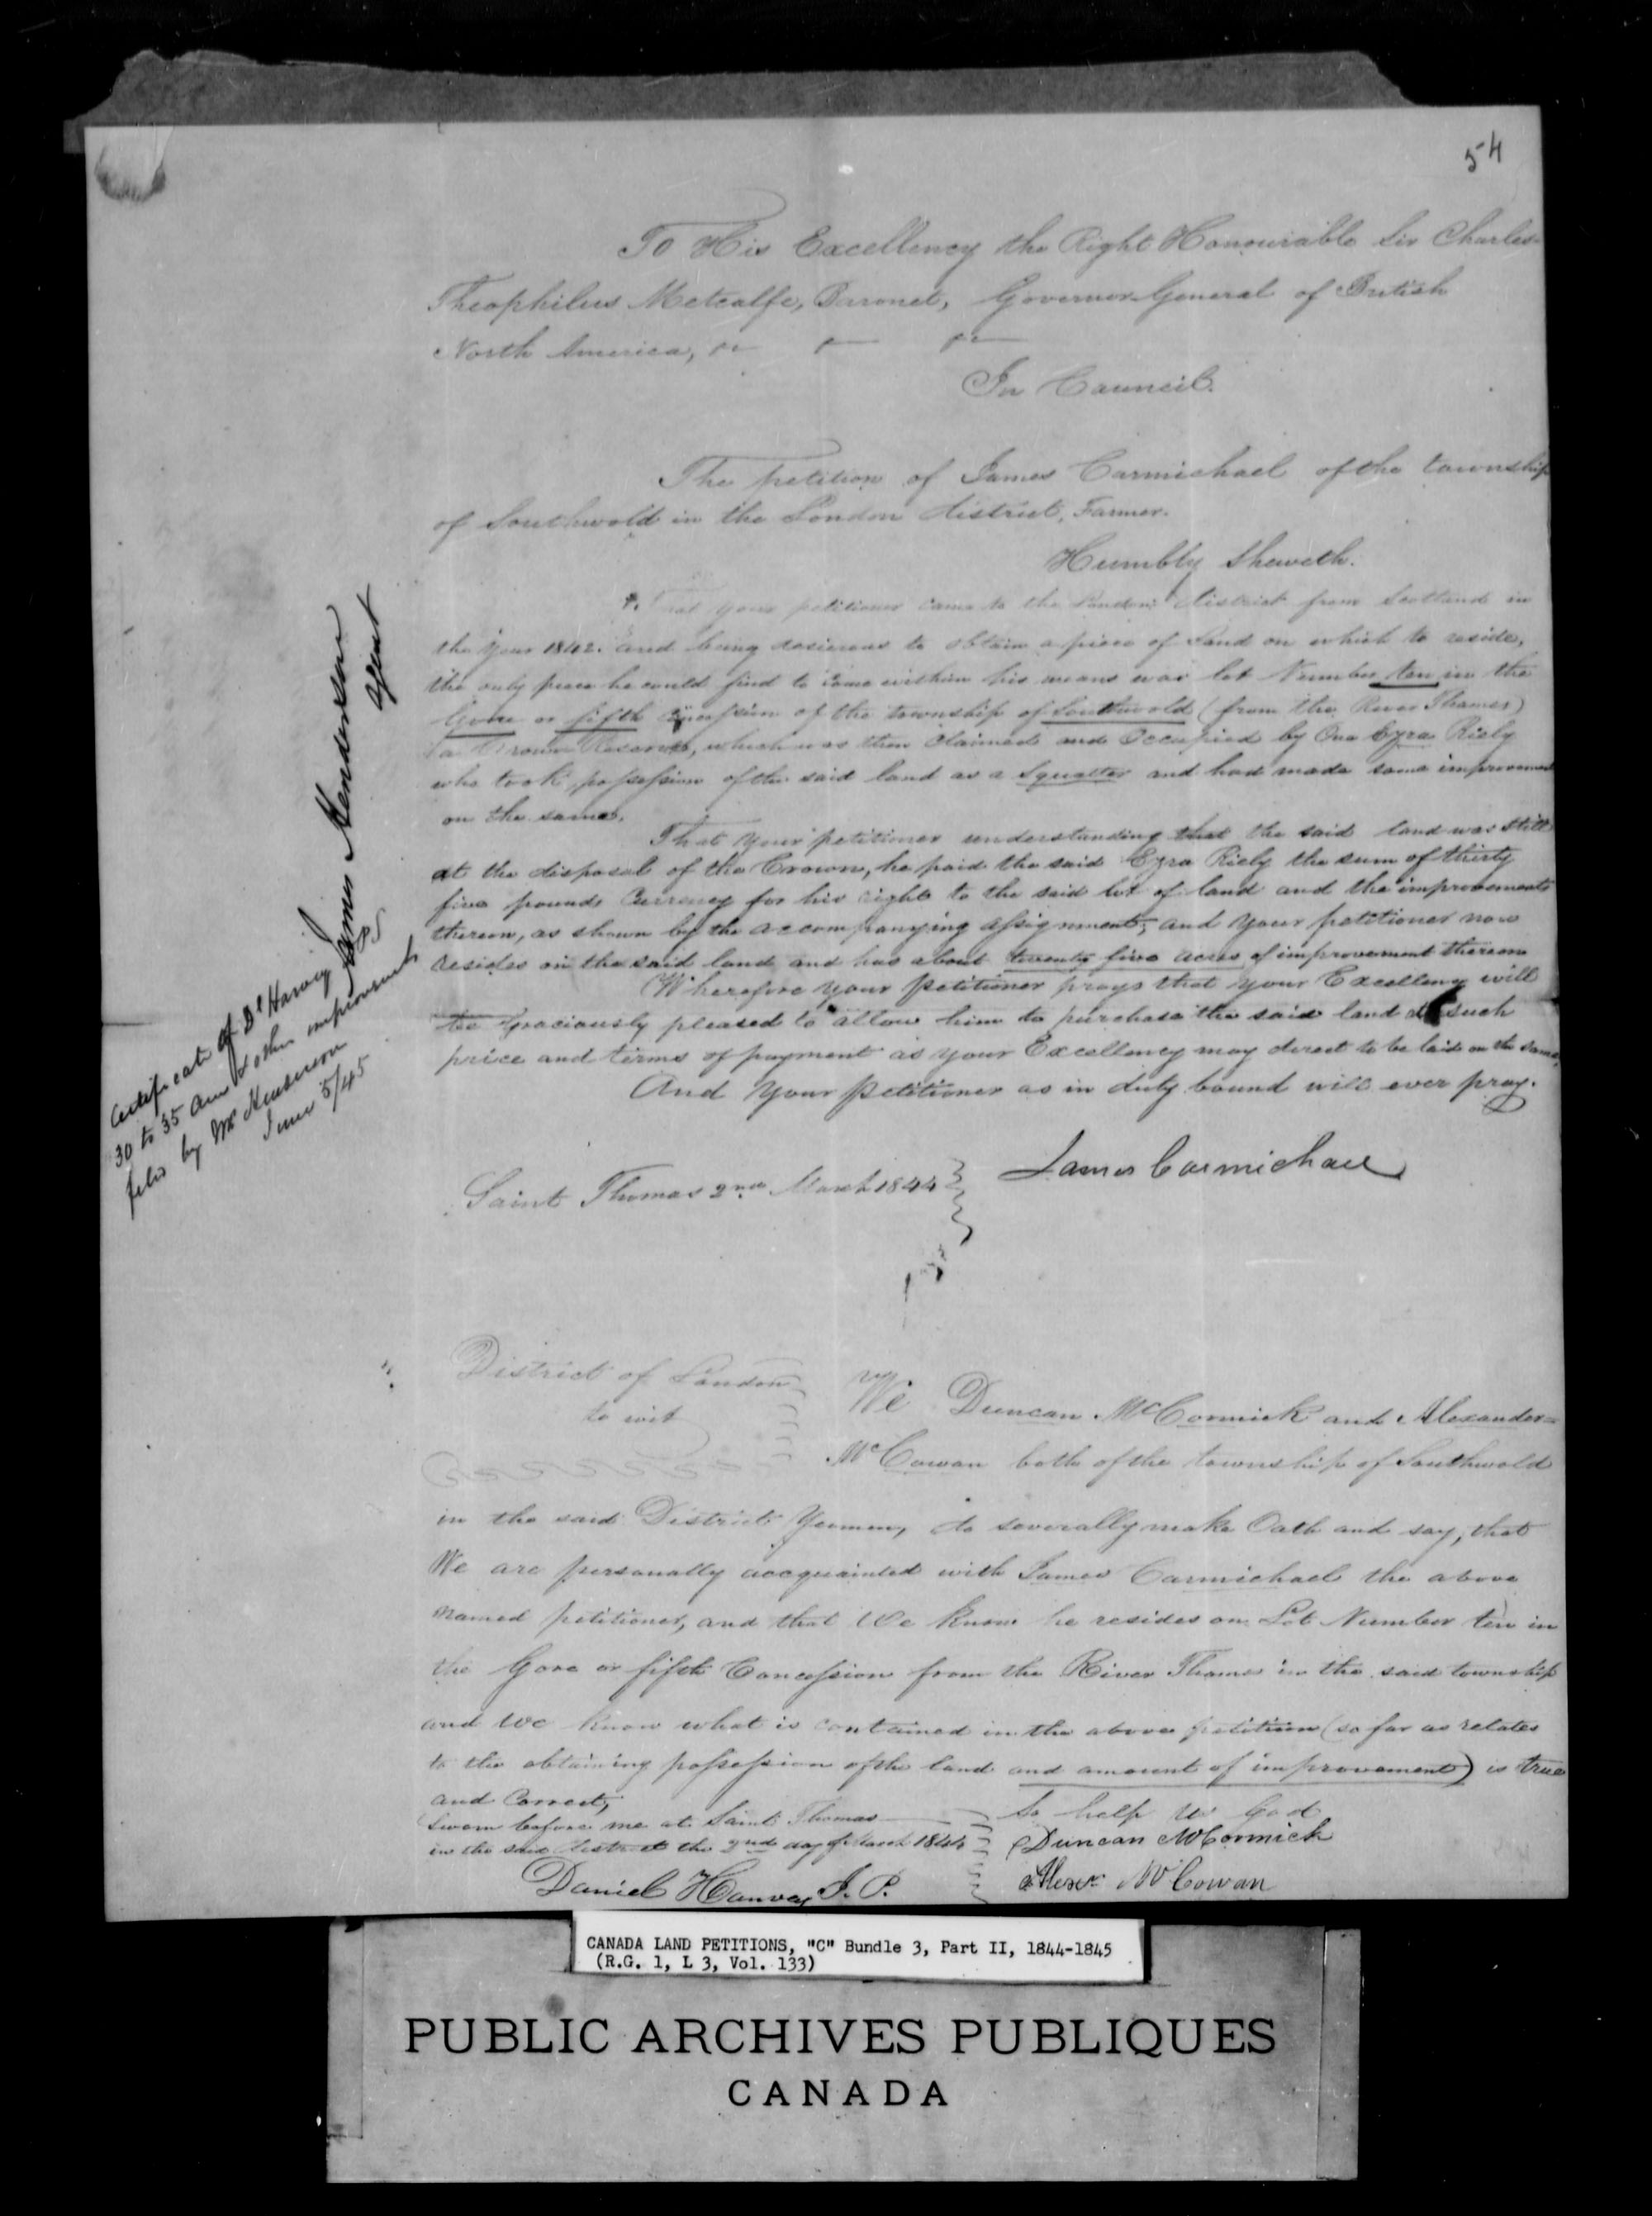 54
To His Excellency the Right Honourable Sir Charles
Theophilus Metcalfe, Baronet, Governor General of British
North America,
In Council.
The petition of James Carmichael of the township
of Southwold in the London district, Farmer.
Humbly Sheweth.
That your petitioner came to the London District from Scotland in
the year 1842. and being desierous to obtain a piece of Land on which to reside,
the only piece he could find to come within his means was lot Number ten in the
Gore or fifth Concession of the township of Southwold (from the River Thames)
(a Crown Reserve, which was then claimed and Occupied by One Ezra Riely
who took possession of the said land as a Squatter and had made some improvement
on the same.
That your petitioner understanding that the said land was still
at the disposal of the Crown, he paid the said Ezra Riely the sum of thirty
five pounds Currency for his right to the said lot of land and the improvements
thereon, as shown by the accompanying assignment, and your petitioner now
resides on the said land and has about twenty five acres of improvement thereon
Wherefore your petitioner prays that your Excellency will
be graciously pleased to allow him to purchase the said land at such
price and terms of payment as your Excellency may direct to be laid on the same,
And your petitioner as in duty bound will ever pray.
James Carmichael
Saint Thomas 2nd March 1844
James Henderson
Agent
Certificate of Dl Harvey JP
30 to 35 acres & other improvements
filed by Mr Henderson
June 5/45
District of London
to wit
We Duncan McCormick and Alexander
McCowan both of the township of Southwold
in the said District Yeomen, do severally make Oath and say, that
We are personally accquainted with James Carmichael the above
named petitioner, and that We know he resides on Lot Number ten in
the Gore or fifth Concession from the River Thames in the said township
and We know what is contained in the above petition (so far as relates
to the obtaining possession of the land and amount of improvement) is true
and Correct,
So help us God
Sworn before me at Saint Thomas
in the said district the 2nd day of March 1844
Duncan McCormick
Alexr McCowan
Daniel Hanvey J. P.
CANADA LAND PETITIONS, "C" Bundle 3, Part II, 1844-1845
(R.G. 1, L 3, Vol. 133)
PUBLIC ARCHIVES PUBLIQUES
CANADA